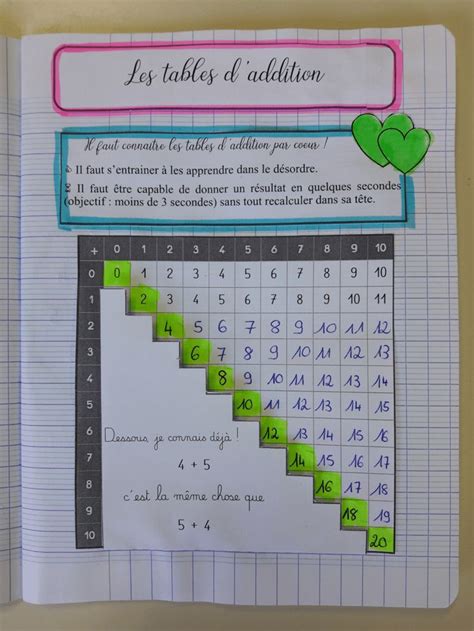 Les tables d'addition
Il faut connaitre les tables d'addition par coeur !
Il faut s'entrainer à les apprendre dans le désordre.
Il faut être capable de donner un résultat en quelques secondes
(objectif : moins de 3 secondes) sans tout recalculer dans sa tête.
+ 0 1 2 3 4 5 6 7 8 9 10
0 0 1 2 3 4 5 6 7 8 9 10
1 2 3 4 5 6 7 8 9 10 11
2 4 5 6 7 8 9 10 11 12
3 6 7 8 9 10 11 12 13
4 8 9 10 11 12 13 14
5 10 11 12 13 14 15
6 Dessous, je connais déjà ! 12 13 14 15 16
7 4 + 5 14 15 16 17
8 c'est la même chose que 16 17 18
9 5 + 4 18 19
10 20